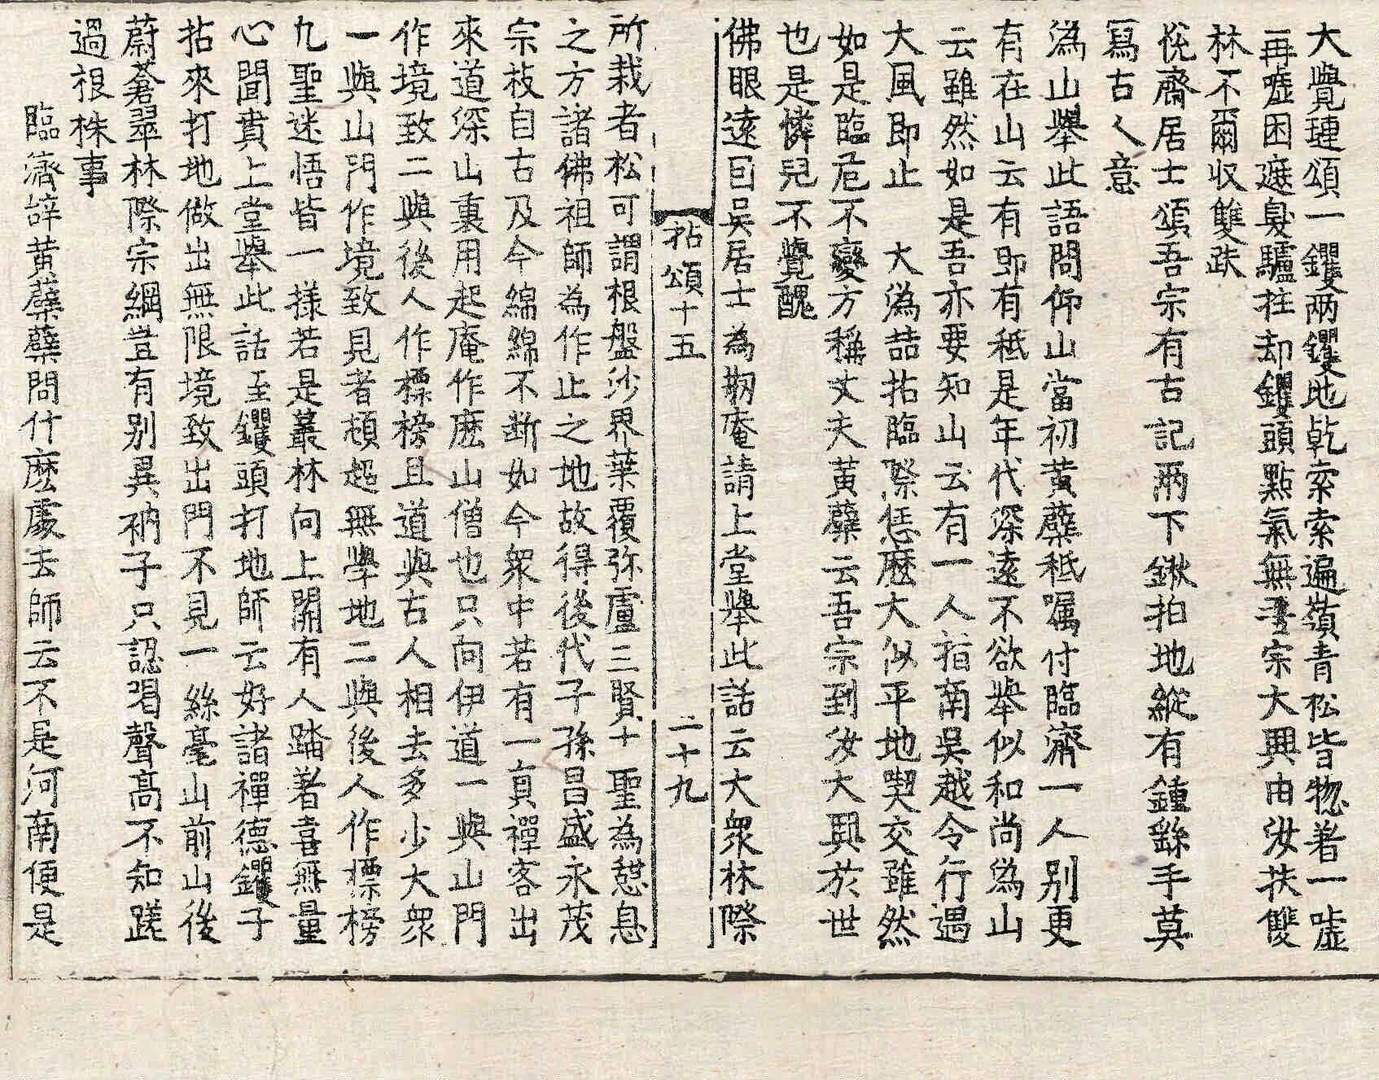 大覺璉頌一钁兩钁地乾索索遍嶺青松皆惣著一噓
再噓困遮㚖驢拄却钁頭點氣無吾宗大興由汝扶雙
林不爾収雙趺
悅齋居士頌吾宗有古記兩下鍬拍地縱有鍾繇手莫
寫古人意
溈山舉此語問仰山當初黃蘗秪嘱付臨濟一人別更
有在山云有即有秪是年代深遠不欲舉似和尚溈山
云雖然如是吾亦要知山云有一人指南吳越令行遇
大風即止　大溈喆拈臨際恁麽大似平地喫交雖然
如是臨危不變方稱丈夫黃蘗云吾宗到汝大興於世
也是憐兒不覺醜
佛眼遠因吳居士為剏庵請上堂舉此話云大衆林際
拈頌十五　二十九
所栽者松可謂根盤沙界葉覆弥盧三賢十聖為憇息
之方諸佛祖師為作止之地故得後代子孫昌盛永茂
宗枝自古及今綿綿不断如今衆中若有一員禪客出
來道深山裏用起庵作麽山僧也只向伊道一與山門
作境致二與後人作標榜且道與古人相去多少大衆
一與山門作境致見者頓超無學地二與後人作標榜
九聖迷悟皆一樣若是叢林向上關有人踏著喜無量
心聞賁上堂舉此話至钁頭打地師云好諸禪德钁子
拈來打地做出無限境致出門不見一絲毫山前山後
蔚蒼翠林際宗綱豈有別異衲子只認唱聲高不知蹉
過根株事
臨濟辝黃蘗蘗問什麽處去師云不是河南便是